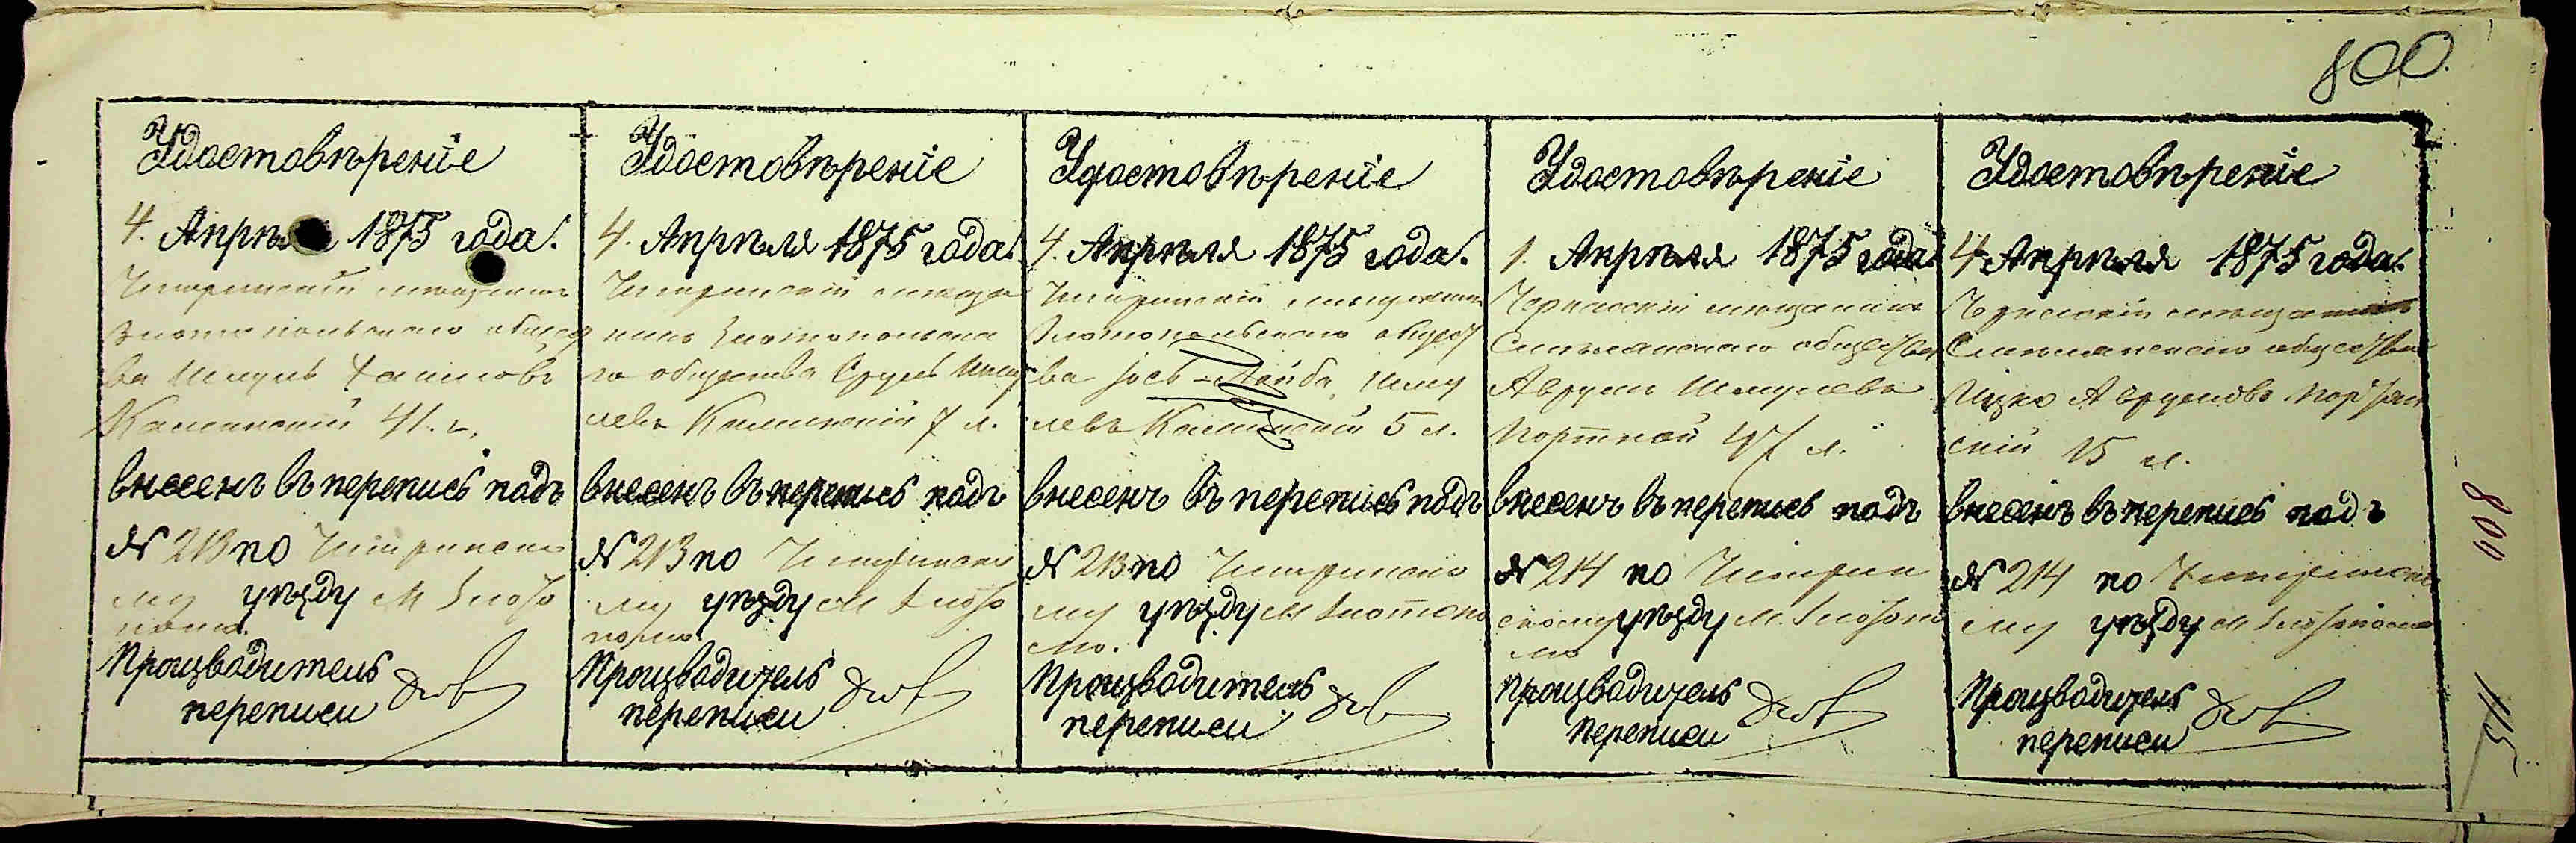 800.
Удостовѣреніе
4. Апрѣ 1875 года.
Чигиринскій мѣщанинъ
Златопольскаго общест
ва Шмуль Хаимовъ
Калинскій 41. г.
внесенъ въ перепись подъ
№ 213 по Чигиринско
му уѣзду М Злато
поль.
Производитель
переписи
Удостовѣреніе
4. Апрѣля 1875 года.
Чигиринскій мѣща
нинъ Златопольска
го общества Сруль Шму
левъ Калинскій 7 л.
внесенъ въ перепись подъ
№ 213 по Чигиринско
му уѣзду М Злато
полю
Производитель
переписи
Удостовѣреніе
4. Апрѣля 1875 года.
Чигиринскій мѣщанинъ
Златопольскаго общест
ва Іось-Лейба Шму
левъ Калинскій 5 л.
внесенъ въ перепись подъ
№ 213 по Чигиринско
му уѣзду М Златопо
лю.
Производитель
переписи
Удостовѣреніе
1. Апрѣля 1875 года.
Черкасскій мѣщанинъ
Смѣлянскаго общества
Аврумъ Шмулевъ
Портной 47 л.
внесенъ въ перепись подъ
№ 214 по Чигирин
скому уѣзду М. Златопо
лю
Производитель
переписи
Удостовѣреніе
4 Апрѣля 1875 года.
Черкасскій мѣщанинъ
Смѣлянскаго общества
Ицко Аврумовъ
скій 15 л.
внесенъ въ перепись подъ
№ 214 по Чигиринско
му уѣзду М Златополю
Производитель
переписи
800